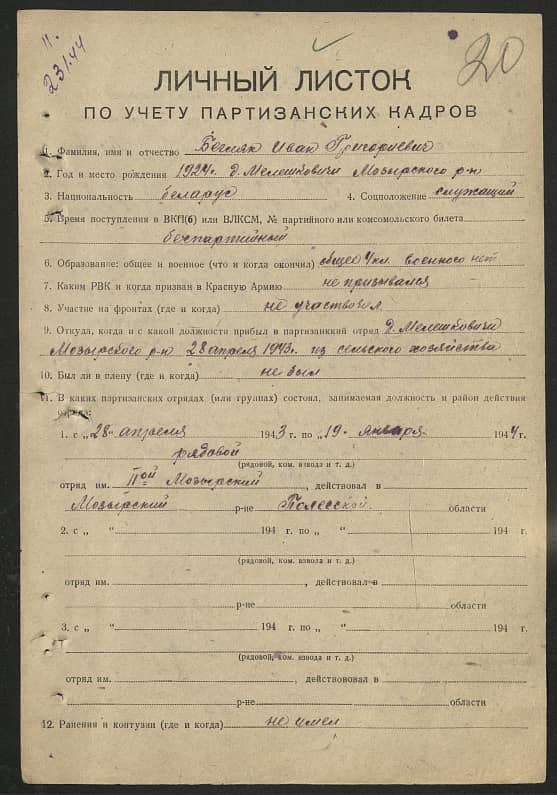 11.
23.1.44
20
ЛИЧНЫЙ ЛИСТОК
ПО УЧЕТУ ПАРТИЗАНСКИХ КАДРОВ
1. Фамилия, имя и отчество Иван Григориевич
2. Год и место рождения 1924г. д. Мелешковичи Мозырского р-н
3. Национальность беларус 4. Соцположение служащий
5. Время поступления в ВКП(б) или ВЛКСМ, № партийного или комсомольского билета
беспартийный
6. Образование: общее и военное (что и когда окончил) общее 4 кл. военного нет
7. Каким РВК и когда призван в Красную Армию не призывался
8. Участие на фронтах (где и когда) не участвовал.
9. Откуда, когда и с какой должности прибыл в партизанский отряд д. Мелешковичи
Мозырского р-н 28 апреля 1943г. из сельского хозяйства
10. Был ли в плену (где и когда) не был
11. В каких партизанских отрядах (или группах) состоял, занимаемая должность и район действия
отряда:
1. с „28“ апреля 1943 г. по „19“ января 1944 г.
рядовой
(рядовой, ком. взвода и т. д.)
отряд им. IIой Мозырский, действовал в
Мозырский р-не Полесской области
2. с „ “ 194 г. по „ “ 194 г.
(рядовой, ком. взвода и т. д.)
отряд им. , действовал в
р-не области
3. с „ “ 194 г. по „ “ 194 г.
(рядовой, ком. взвода и т. д.)
отряд им. , действововал в
р-не области
12. Ранения и контузии (где и когда) не имел